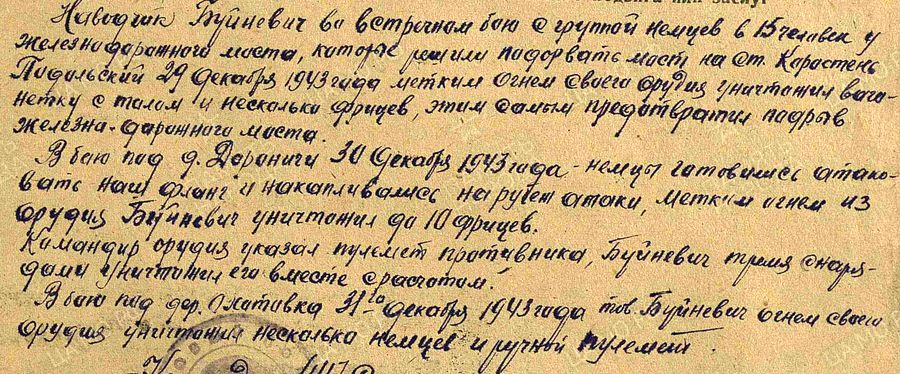 Наводчик Буйневич во встречном бою с группой немцев в 15 человек у
железнодорожного моста, которые решили подорвать мост на ст. Каростень
Подольский 29 декабря 1943 года метким огнем своего орудия уничтожил ваго-
нетку с толом и несколько фрицев, этим самым предотвратил подрыв
железно-дорожного моста.
В бою под д. Дороничи 30 декабря 1943 года - немцы готовились атако-
вать наш фланг и накапливались на рубеж атаки, метким огнем из
орудия Буйневич уничтожил до 10 фрицев.
Командир орудия указал пулемет противника, Буйневич тремя снаря-
дами уничтожил его вместе с расчетом.
В бою под дер. 31го декабря 1943 года тов. Буйневич огнем своего
орудия уничтожил несколько немцев и ручной пулемет.